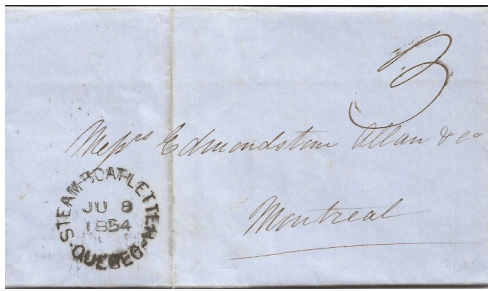 3
Messrs Edmondstone Allan & co
Montreal
STEAMBOAT-LETTER
JU 8
1854
QUEBEC